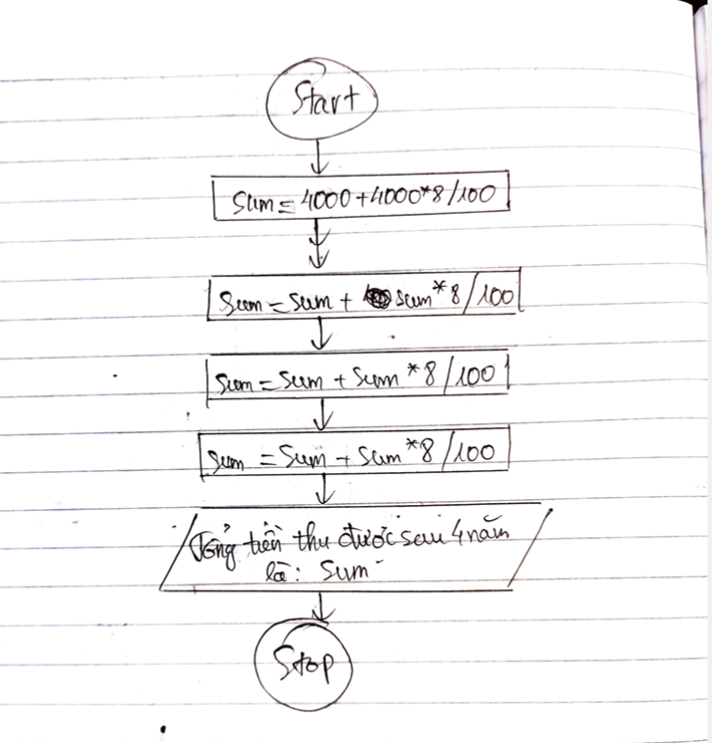 Start
Sum = 4000 + 4000*8/100
Sum = Sum + Sum*8/100
Sum = Sum + Sum*8/100
Sum = Sum + Sum*8/100
Tổng tiền thu được sau 4 năm
là: Sum
Stop